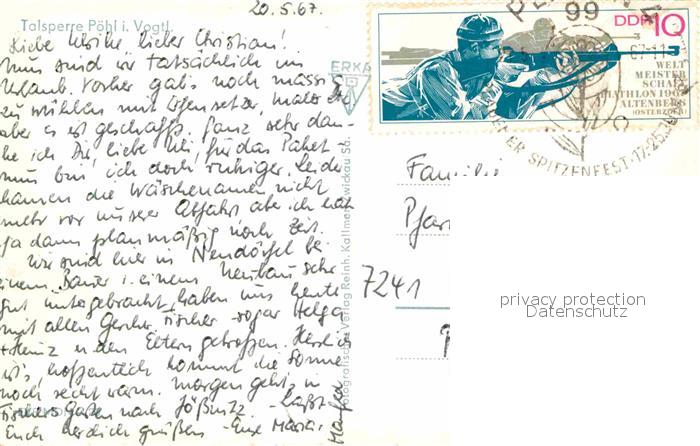 20.5.67.
Talsperre Pöhl i. Vogtl.
Liebe Ulrike, lieber Christian!
Nun sind wir tatsächlich im
Urlaub. Vorher gab's noch massig
zu wühlen mit Ofensetzer, Maler etc.
aber es ist geschafft. Ganz sehr dan-
ke ich Dir, liebe Uli, für das Paket -
nun bin ich doch ruhiger. Leider
kamen die Wäschenamen nicht
mehr vor unserer Abfahrt aber ich hab
ja dann planmäßig noch Zeit.
Wir sind hier in Neudörfel bei
einem Bauer i. einem Neubau sehr
gut untergebracht, haben uns heute
mit allen Fischer sogar Helga
+ Heinz u. den Eltern getroffen. Herrlich
ist's, hoffentlich kommt die Sonne
noch recht warm. Morgen geht's in
Fischers Garten nach Jößnitz. -Laßt
Euch herzlich grüßen - Eure Maria.
Manfred
ERKA
Fotografischer Verlag Reinh. Kallmer, Zwickau Sa.
DDR 10
WELT
MEISTER
SCHAFT
BIATHLON 1967
ALTENBERG
(OSTERZGEB)
99
SPITZENFEST·17.-25.
Familie
7241
privacy protection
Datenschutz